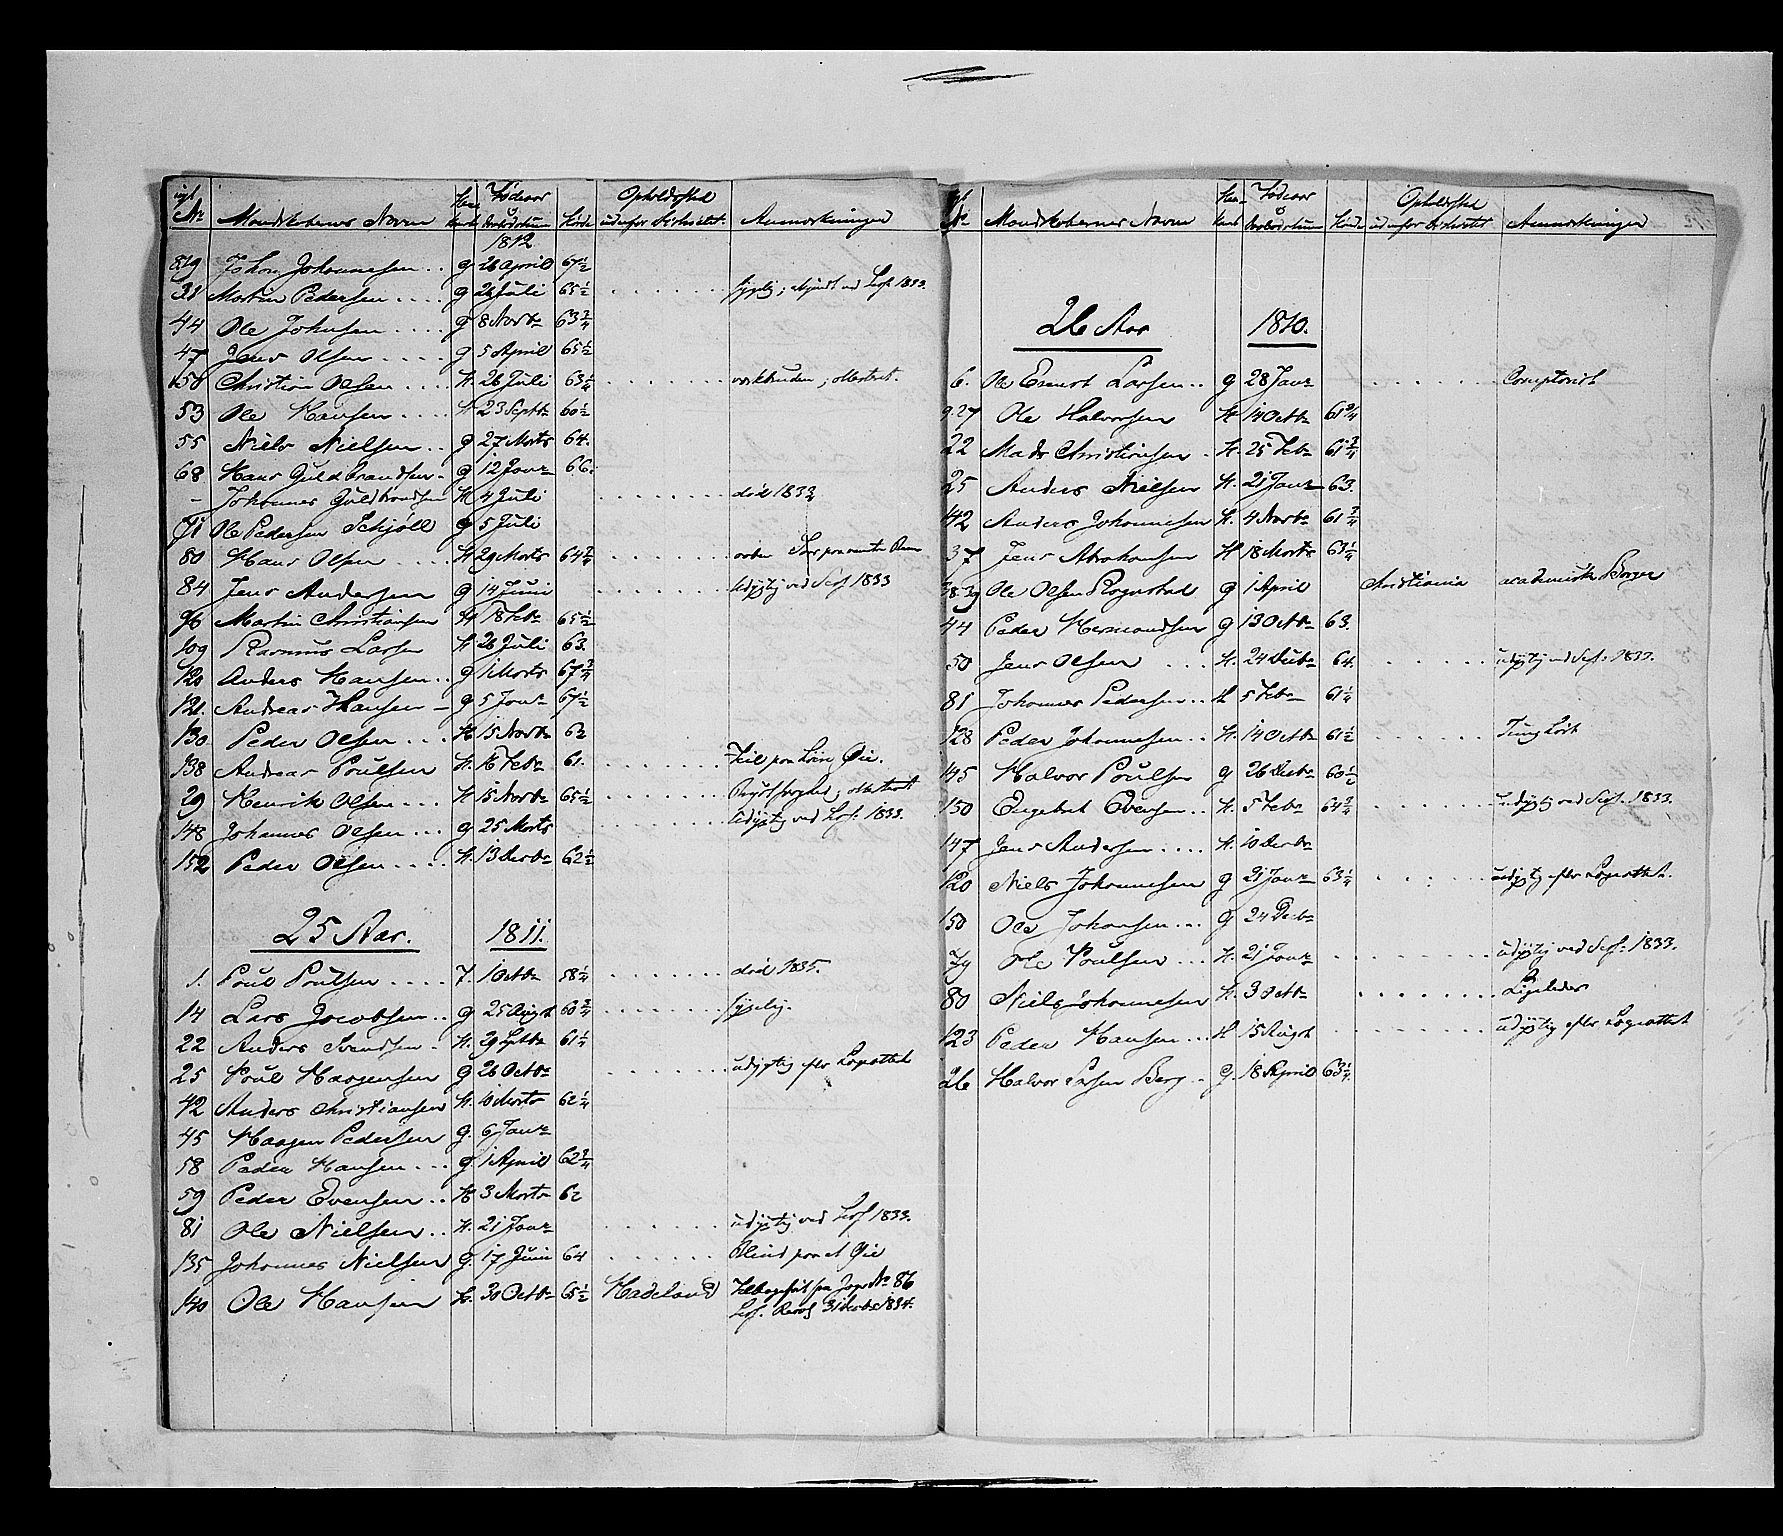 Mandskabernes Navne Fødeaar Høide Opholdssted udenfor Districtet Anmærkninger
1812
Johan Johannesen .. g 26 April 67½
31 Morten Pedersen .... g 26 Juli 65½
44 Ole Johnsen .... g 8 Novbr 63¾
47 Jens Olsen .... g 5 April 65½
50 Christian Olsen .... H. 26 Juli 63¼
53 Ole Hansen .... H 23 Septbr 60½
55 Niels Nielsen .. g 27 Marts 64.
68 Hans Guldbrandsen - g 12 Janr 66.
- Johannes Guldbrandsen H 4 Juli død 1833
71 Ole Pedersen Schjøll g 5 Juli
80 Hans Olsen .... H 29 Marts 64¾
84 Jens Andersen g 14 Juni udygtig ved Sess. 1833
96 Martin Christiansen H 18 Febr 65½
109 Rasmus Larsen H. 26 Juli 63.
120 Anders Hansen .. g 1 Marts 67¾
121. Andreas Hansen - g 5 Janr 67½
130 Peder Olsen ... H 15 Novbr 62
138 Andreas Poulsen H. 16 Febr 61. Feil paa høire Øie.
29 Henrik Olsen ... H 15 Novbr 65½
148 Johannes Olsen ... g 25 Marts udygtig ved Sess. 1833.
152 Peder Olsen .... H. 13 Decbr 62½
25 Aar. 1811.
1. Poul Poulsen .... F. 1 Octbr 58¼ død 1835.
14 Lars Jacobsen .. g 25 Augst 60¾ sygelig.
22 Anders Svendsen - H. 29 Septbr 61¼
25 Poul Haagensen g 26 Octbr udygtig efter Lægeattest
42 Anders Christiansen H. 10 Marts 62¼
45 Haagen Pedersen g. 6 Janr
58 Peder Hansen ... g 1 April 62¾
59 Peder Evensen .. H 3 Marts 62
81 Ole Nielsen .. H. 21 Janr udygtig ved Sess 1833.
135 Johannes Nielsen g. 17 Juni 64 Blind paa et Øie
140 Ole Hansen H. 30 Octbr 65½ Hadeland
Mandskabernes Navne Fødeaar Høide Opholdssted udenfor Districtet Anmærkninger
26 Aar 1810.
6. Ole Ernst Larsen .. g 28 Janr Comptorist
27 Ole Halvorsen H 14 Octbr 61¾
22 Mads Christiansen - H. 25 Febr 61¾
25 Anders Nielsen H. 21 Janr 63.
42 Anders Johannesen H. 4 Novbr 61¾
37 Jens Abrahamsen H 18 Marts 63¼
39 Ole Olsen Rognstad g 1 April Christiania academisk Borger
44 Peder Hermandsen g 13 Octbr 63.
50 Jens Olsen ... H. 24 Decbr 64. udygtig ved Sess: 1833.
81 Johannes Pedersen .. H 5 Febr 61¼
128 Peder Johannesen .. H. 14 Octbr 61½ Tunghørt
145 Halvor Poulsen g 26 Decbr 60½
150 Engebret Evensen .. H. 5 Febr 64¾ udygtig ved Sess. 1833.
147 Jens Andersen .... H. 10 Decbr
120 Niels Johannesen g 21 Janr 63¼ udygtig efter Lægeattest.
150 Ole Johansen ... g 24 Decbr
79 Ole Poulsen ... H. 21 Janr udygtig ved Sess: 1833.
80 Niels Johannesen H. 3 Octbr
123 Peder Hansen ... H 15 Augst udygtig efter Lægeattest
26 Halvor Larsen Berg .. g. 18 April 63¼